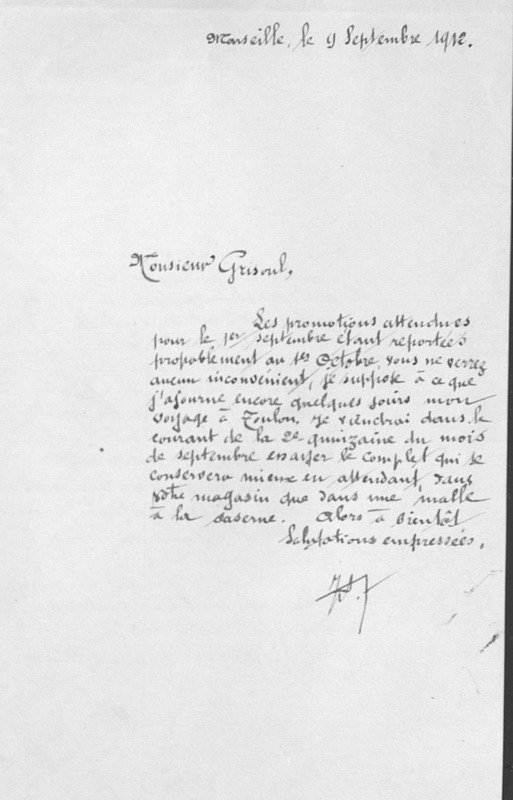 Marseille, le 9 Septembre 1912.
Monsieur Grisoul,
Les promotions attendues
pour le 1er septembre étant reportées
propablement au 1er Octobre, vous ne verrez
aucun inconvénient, je suppose à ce que
j'ajourne encore quelques jours mon
voyage à Toulon. Je viendrai dans le
courant de la 2e quinzaine du mois
de septembre essayer le complet qui se
conservera mieux en attendant dans
votre magasin que dans une malle
à la caserne. Alors à bientôt
Salutations empressées.